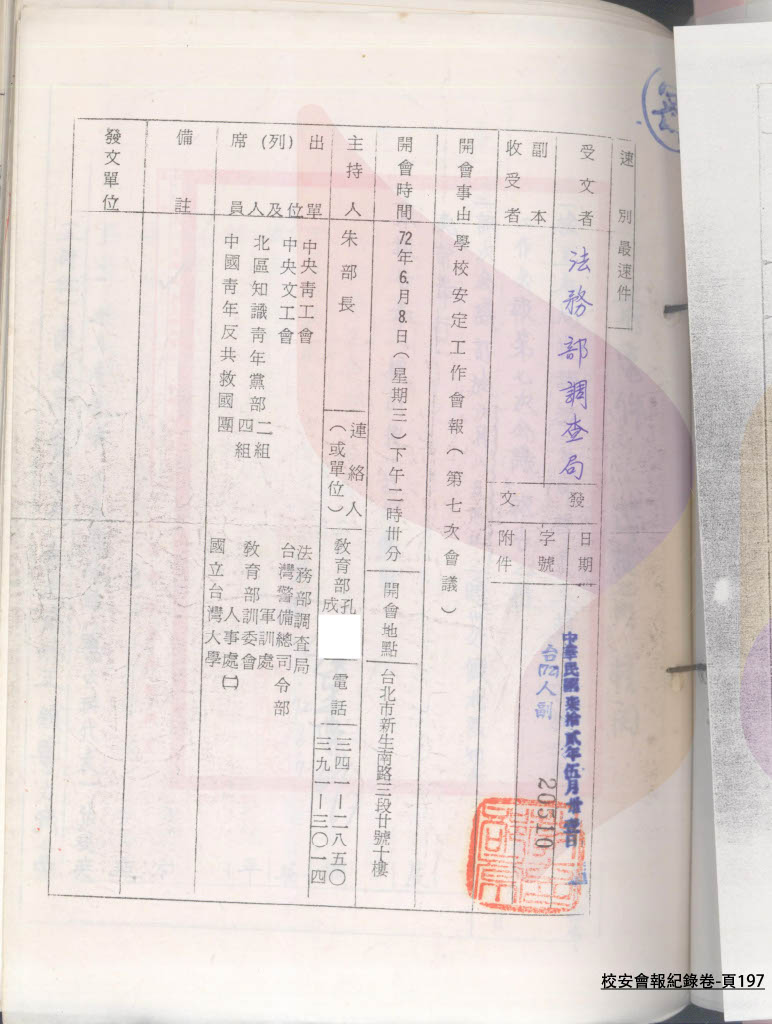 速別 最速件
受文者 法務部調查局
副本收受者
發文
日期 中華民國柒拾貳年伍月卅壹日
字號 台(72)人副 20510
附件
開會事由 學校安定工作會報(第七次會議)
開會時間 72年6月8日(星期三)下午二時卅分
開會地點 台北市新生南路三段廿號十樓
主持人 朱部長
連絡人(或單位) 教育部孔成
電話 三四一—二八五〇
三九一—三〇一四
出(列)席單位及人員
中央青工會
中央文工會
北區知識青年黨部二組四組
中國青年反共救國團
法務部調查局
台灣警備總司令部
教育部軍訓處
訓委會
人事處(二)
國立台灣大學
備註
發文單位
校安會報紀錄卷-頁197